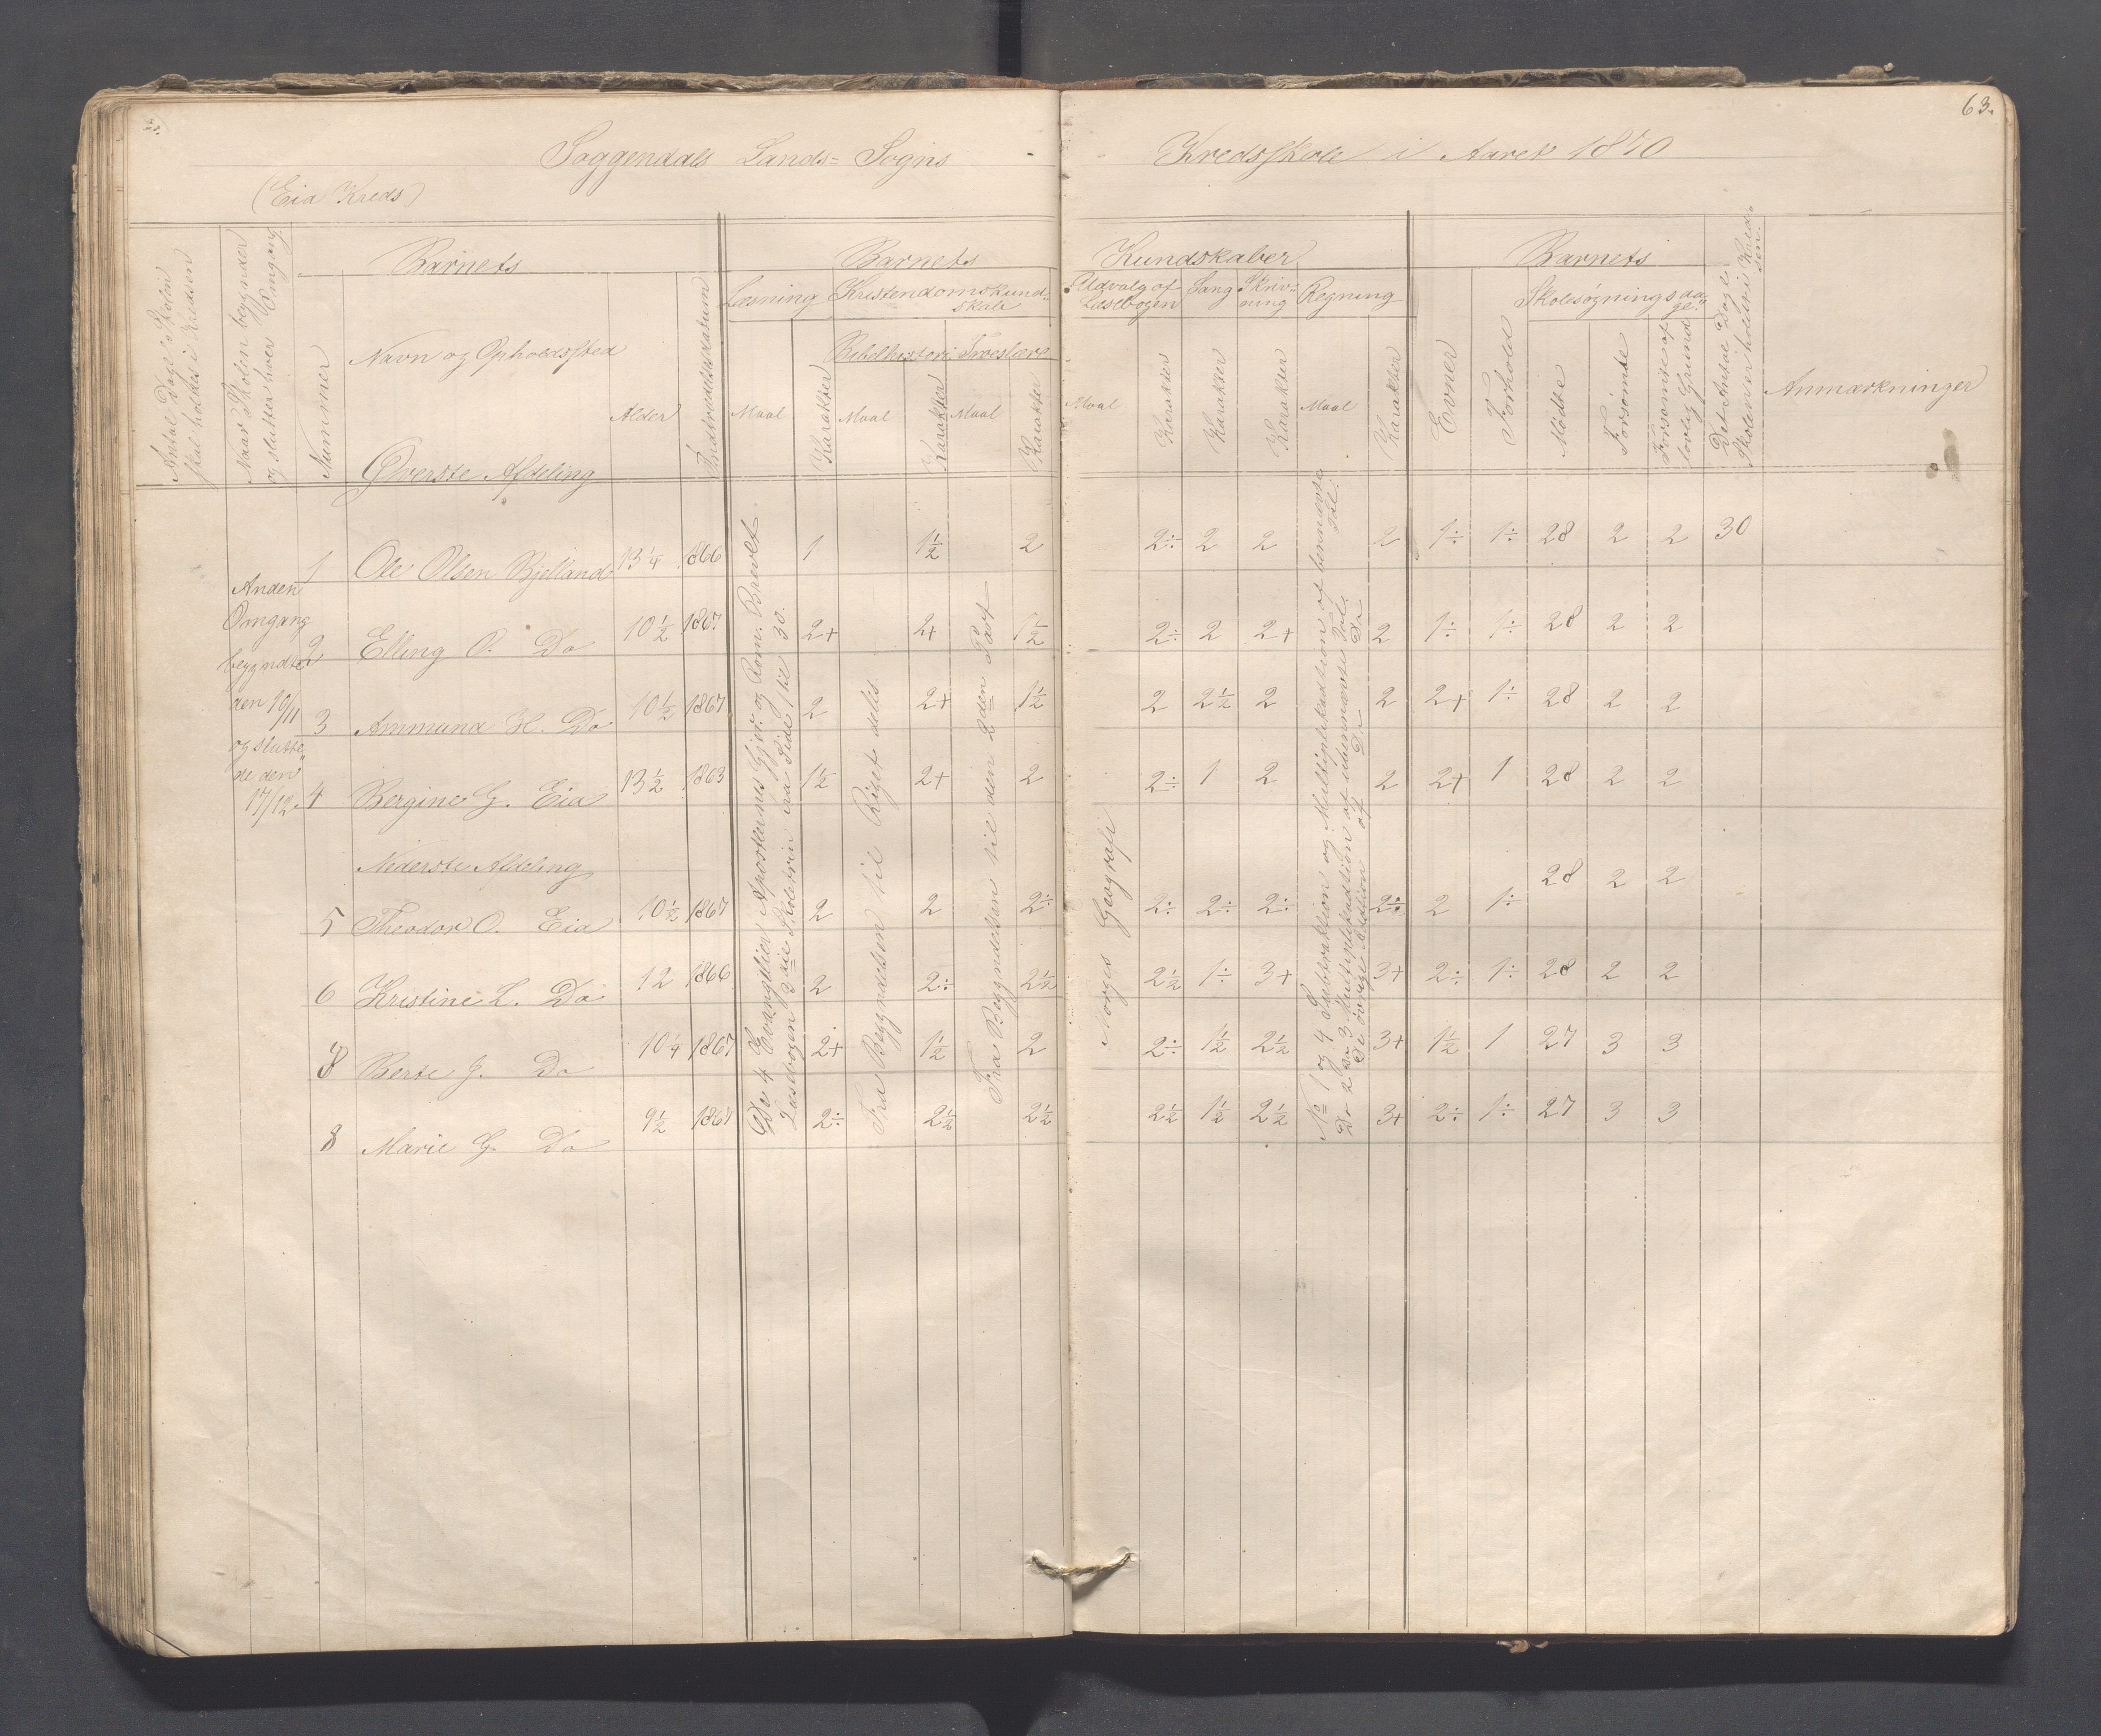 63.
Soggendals Lands= Sogns Kredsskole i Aaret 1870
(Eia Kreds)
Antal Dage Skolen skal holdes i Kredsen
Naar Skolen begynder og slutter hver Omgang
Nummer
Barnets
Navn og Opholdssted
Alder
Indtrædelsesdatum
Barnets Kundskaber
Læsning
Kristendomskundskab
Bibelhistorie
Troeslære
Udvalg af Læsebogen
Sang
Skrivning
Regning
Maal Karakter Maal Karakter Maal Karakter
Maal Karakter Karakter Karakter Maal Karakter
Barnets
Evner
Forhold
Skolesøgningsdage
Mødte
Forsømte
Forsømte af lovlig Grund
Det Antal Dage Skolen er holdt i Kredsen
Anmærkninger
Øverste Afdeling
Anden Omgang begyndte den 10/11 og sluttede den 17/12
1 Ole Olsen Bjelland 13 1/4 1866 1 1 1/2 2 2÷ 2 2 2 1÷ 1÷ 28 2 2 30
2 Elling O. Do 10 1/2 1867 2+ 2+ 1 1/2 2÷ 2 2+ 2 1÷ 1÷ 28 2 2
3 Ammund H. Do 10 1/2 1867 2 2+ 1 1/2 2 2 1/2 2 2 2+ 1÷ 28 2 2
4 Bergine G. Eia 13 1/2 1863 1 1/2 2+ 2 2÷ 1 2 2 2+ 1 28 2 2
Nederste Afdeling
5 Theodor O. Eia 10 1/2 1867 2 2 2÷ 2÷ 2÷ 2÷ 2÷ 2 1÷ 28 2 2
6 Kristine L. Do 12 1866 2 2÷ 2 1/2 2 1/2 1÷ 3+ 3+ 2÷ 1÷ 28 2 2
8 Berte G. Do 10 1/4 1867 2+ 1 1/2 2 2÷ 1 1/2 2 1/2 3+ 1 1/2 1 27 3 3
8 Marie G. Do 9 1/2 1867 2÷ 2 1/2 2 1/2 2 1/2 1 1/2 2 1/2 3+ 2÷ 1÷ 27 3 3
De 4 Evangelier, Apostlernes Gjer. og Rom. Brevet.
Læsebogen 3die Skoletrin fra Side 1 til 30.
Fra Begyndelsen til Riget deles.
Fra Begyndelsen til den 2den Part
Norges Geografi
No 1 og 4 Subtraktion og Multiplikation af benævnte Tal.
Do 2 og 3 Multiplikation af ubenævnte Tal
De øvrige Addition af Do Do